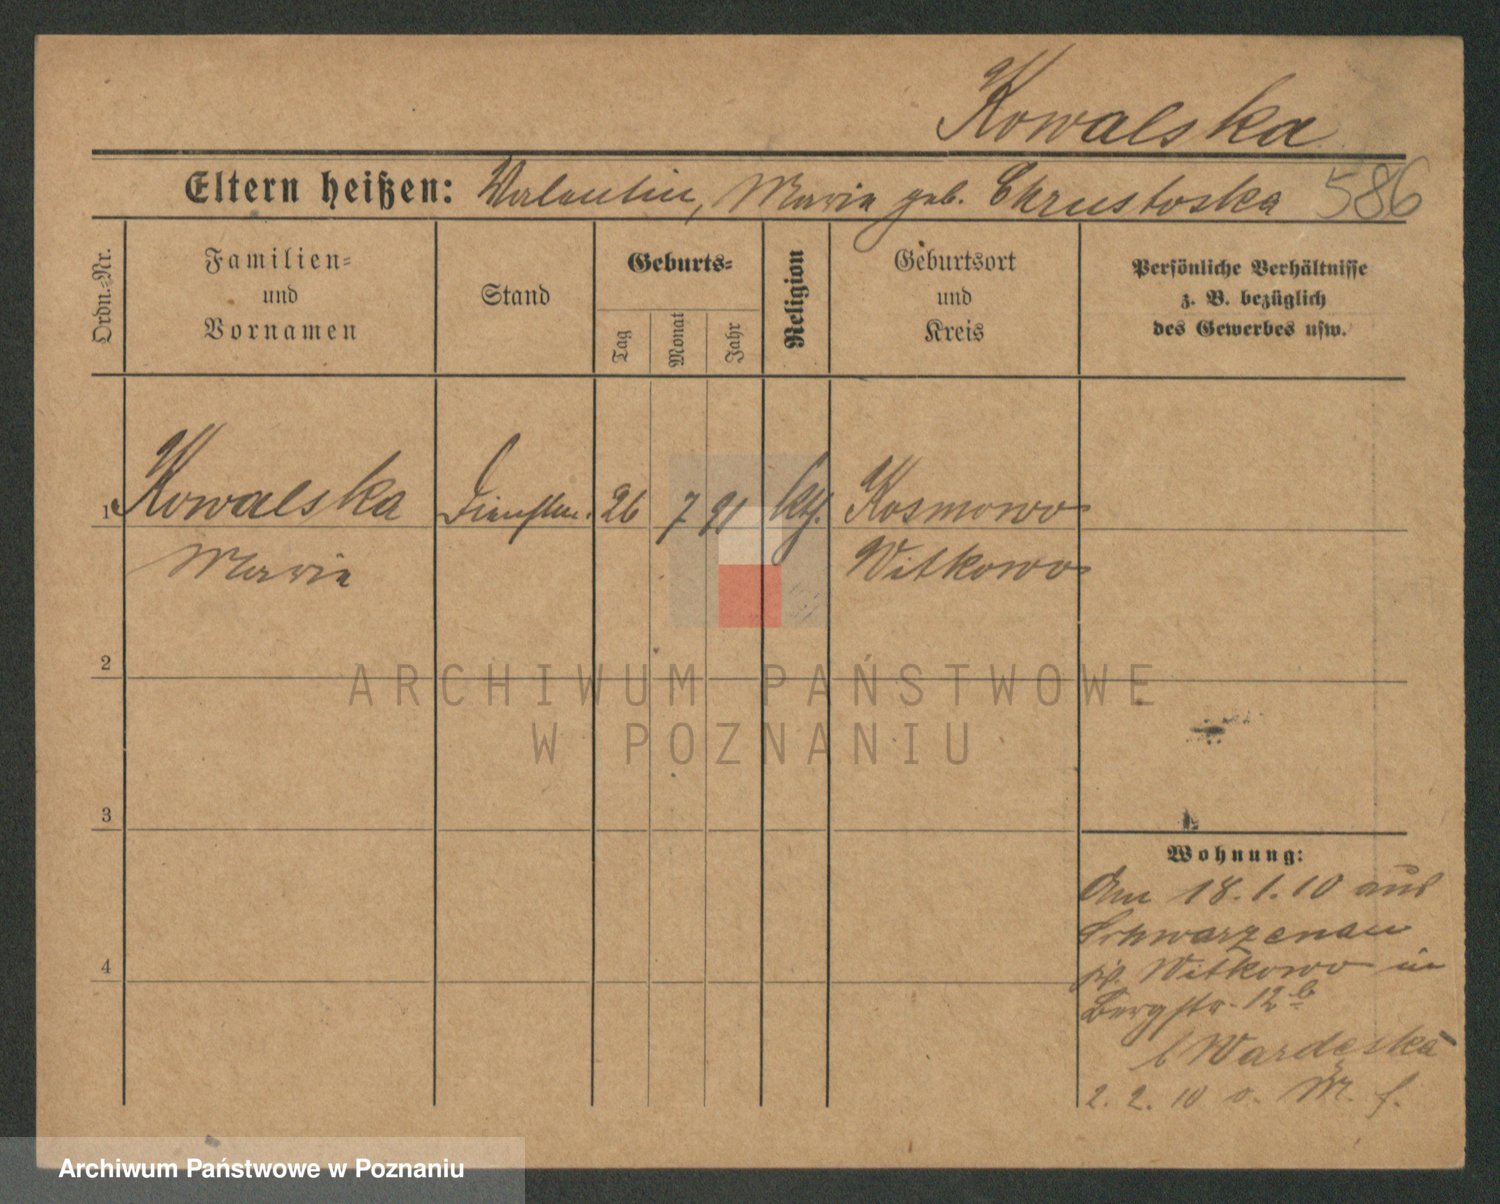 Kowalska
Eltern heißen: Valentin, Maria geb. Chrustoska 586
Ordn.-Nr.
Familien-
und
Vornamen
Stand
Geburts-
Tag
Monat
Jahr
Religion
Geburtsort
und
Kreis
Persönliche Verhältnisse
z. B. bezüglich
des Gewerbes usw.
1 Kowalska Dienstm. 26 7 91 kth. Kosmowo
Maria Witkowo
2
ARCHIWUM PAŃSTWOWE
W POZNANIU
3
Wohnung:
Am 18.1.10 aus
Schwarzenau
Witkowo in
4
Bergstr. 12b
b Wardęska
2. 2. 10 o. M. f.
Archiwum Państwowe w Poznaniu